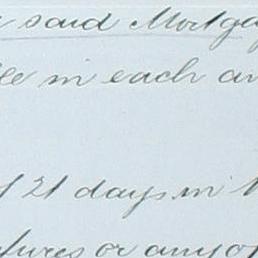 said Mortga
in each an
21 days in
or any of